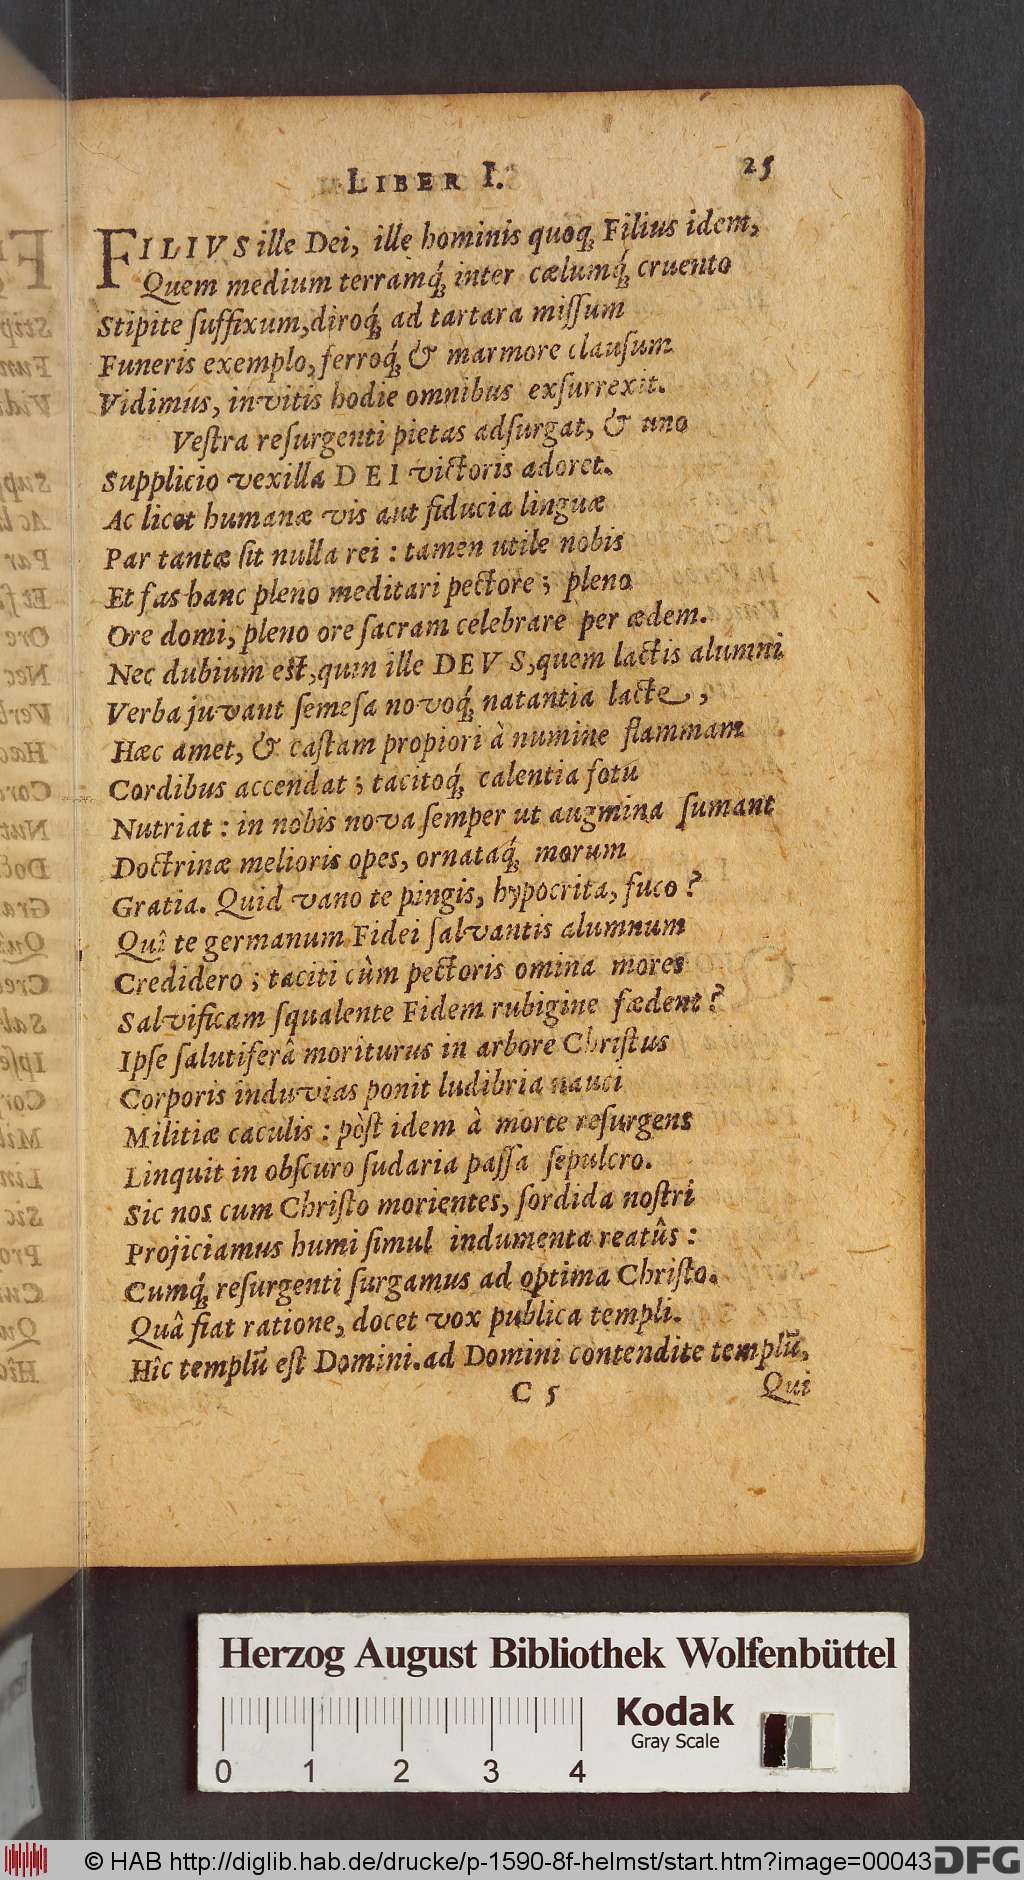 LIBER I. 25
FILIVS ille Dei, ille hominis quoq; Filius idem,
Quem medium terramq́; inter cælumq́; cruento
Stipite ſuffixum, diroq́; ad tartara miſſum
Funeris exemplo, ferroq́; & marmore clauſum
Vidimus, invitis hodie omnibus exſurrexit.
Veſtra reſurgenti pietas adſurgat, & uno
Supplicio vexilla DEI victoris adoret.
Ac licet humanæ vis aut fiducia linguæ
Par tantæ ſit nulla rei : tamen utile nobis
Et fas hanc pleno meditari pectore ; pleno
Ore domi, pleno ore ſacram celebrare per ædem.
Nec dubium est, quin ille DEVS, quem lactis alumni
Verba juvant ſemeſa novoq́; natantia lacte,
Hæc amet, & caſtam propiori à numine flammam
Cordibus accendat ; tacitoq́; calentia fotu
Nutriat : in nobis nova ſemper ut augmina ſumant
Doctrinæ melioris opes, ornataq́; morum
Gratia. Quid vano te pingis, hypocrita, fuco ?
Quî te germanum Fidei ſalvantis alumnum
Credidero ; taciti cùm pectoris omina mores
Salvificam ſqualente Fidem rubigine fædent ?
Ipſe ſalutiferâ moriturus in arbore Chriſtus
Corporis induvias ponit ludibria nauci
Militiæ caculis : pòſt idem à morte reſurgens
Linquit in obſcuro ſudaria paſſa ſepulcro.
Sic nos cum Chriſto morientes, ſordida noſtri
Projiciamus humi ſimul indumenta reatûs :
Cumq́; reſurgenti ſurgamus ad optima Chriſto.
Quâ fiat ratione, docet vox publica templi.
Hîc templũ eſt Domini. ad Domini contendite templũ,
C 5 Qui
Herzog August Bibliothek Wolfenbüttel
Kodak
Gray Scale
0 1 2 3 4
© HAB http://diglib.hab.de/drucke/p-1590-8f-helmst/start.htm?image=00043
DFG